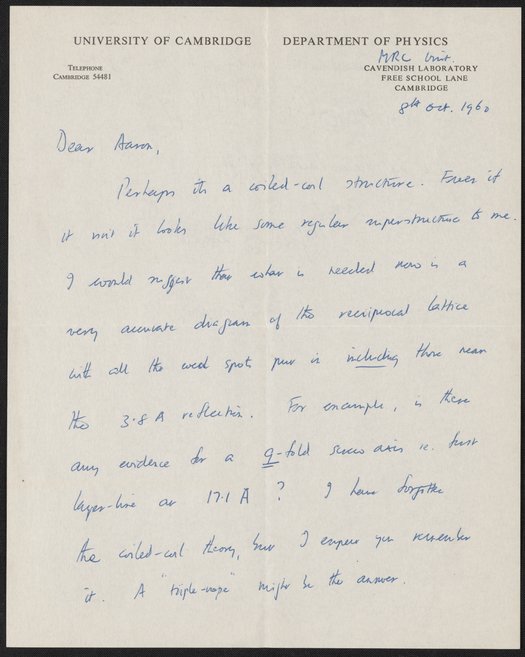 UNIVERSITY OF CAMBRIDGE DEPARTMENT OF PHYSICS
TELEPHONE
CAMBRIDGE 54481
MRC Unit.
CAVENDISH LABORATORY
FREE SCHOOL LANE
CAMBRIDGE
8th Oct. 1960
Dear Aaron,
Perhaps its a coiled-coil structure. Even if
it isn't it looks like some regular superstructure to me.
I would suggest that what is needed now is a
very accurate diagram of the reciprocal lattice
with all the weak spots put in including those near
the 3.8 A reflection. For example, is there
any evidence for a 9-fold screw axis ie. first
layer-line at 17.1 Å ? I have forgotten
the coiled-coil theory, but I expect you remember
it. A "triple-rope" might be the answer.